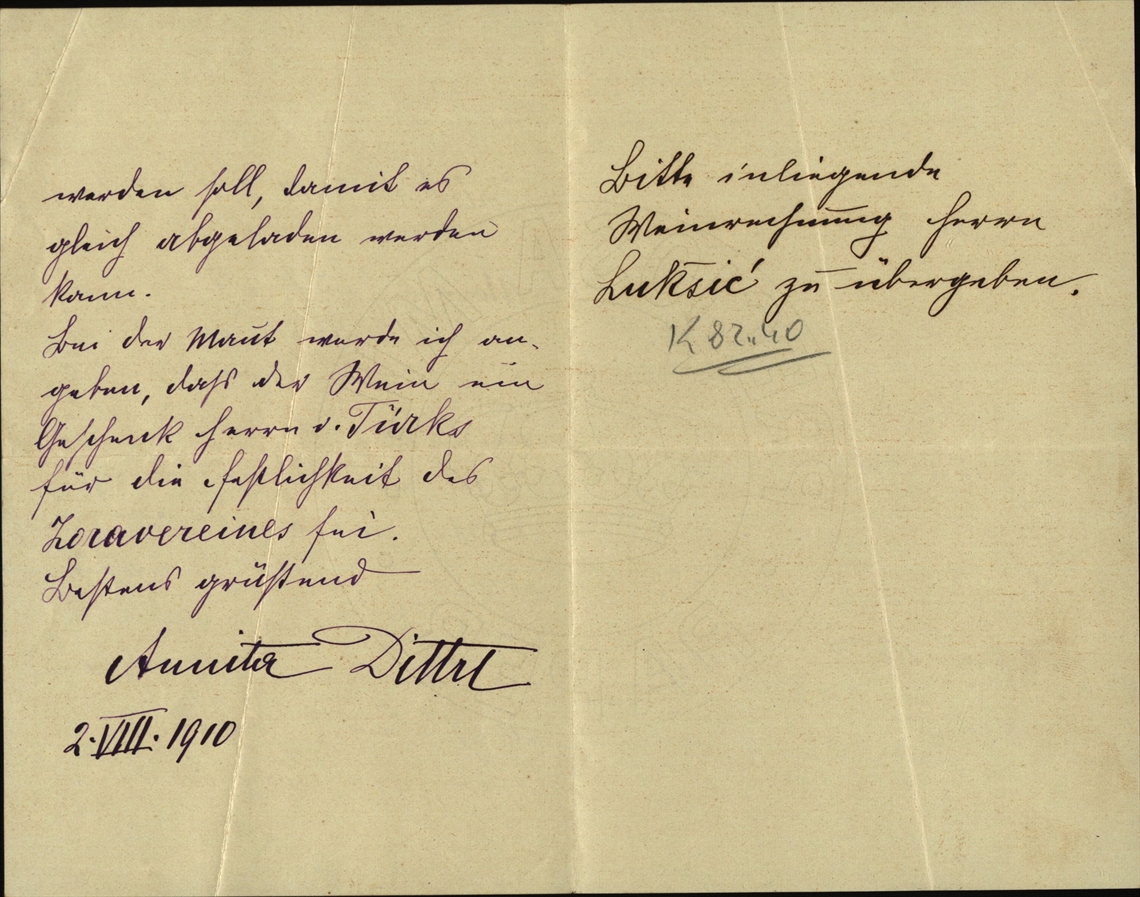 werden soll, damit es
gleich abgeladen werden
kann.
Bei der Maut werde ich an-
geben, dass der Wein ein
Geschenk Herrn v. Türks
für die Festlichkeit des
Zoravereines sei.
Bestens grüßend
Annita Dittrl
2. VIII. 1910
Bitte inliegende
Weinrechnung Herrn
Lukšić zu übergeben.
K 82.40